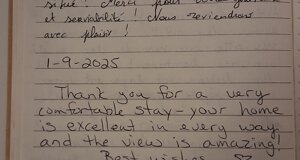 ! Merci pour
et serviabilité ! Nous reviendrons
avec plaisir !
1-9-2025
Thank you for a very
comfortable stay - your home
is excellent in every way
and the view is amazing!
Best wishes